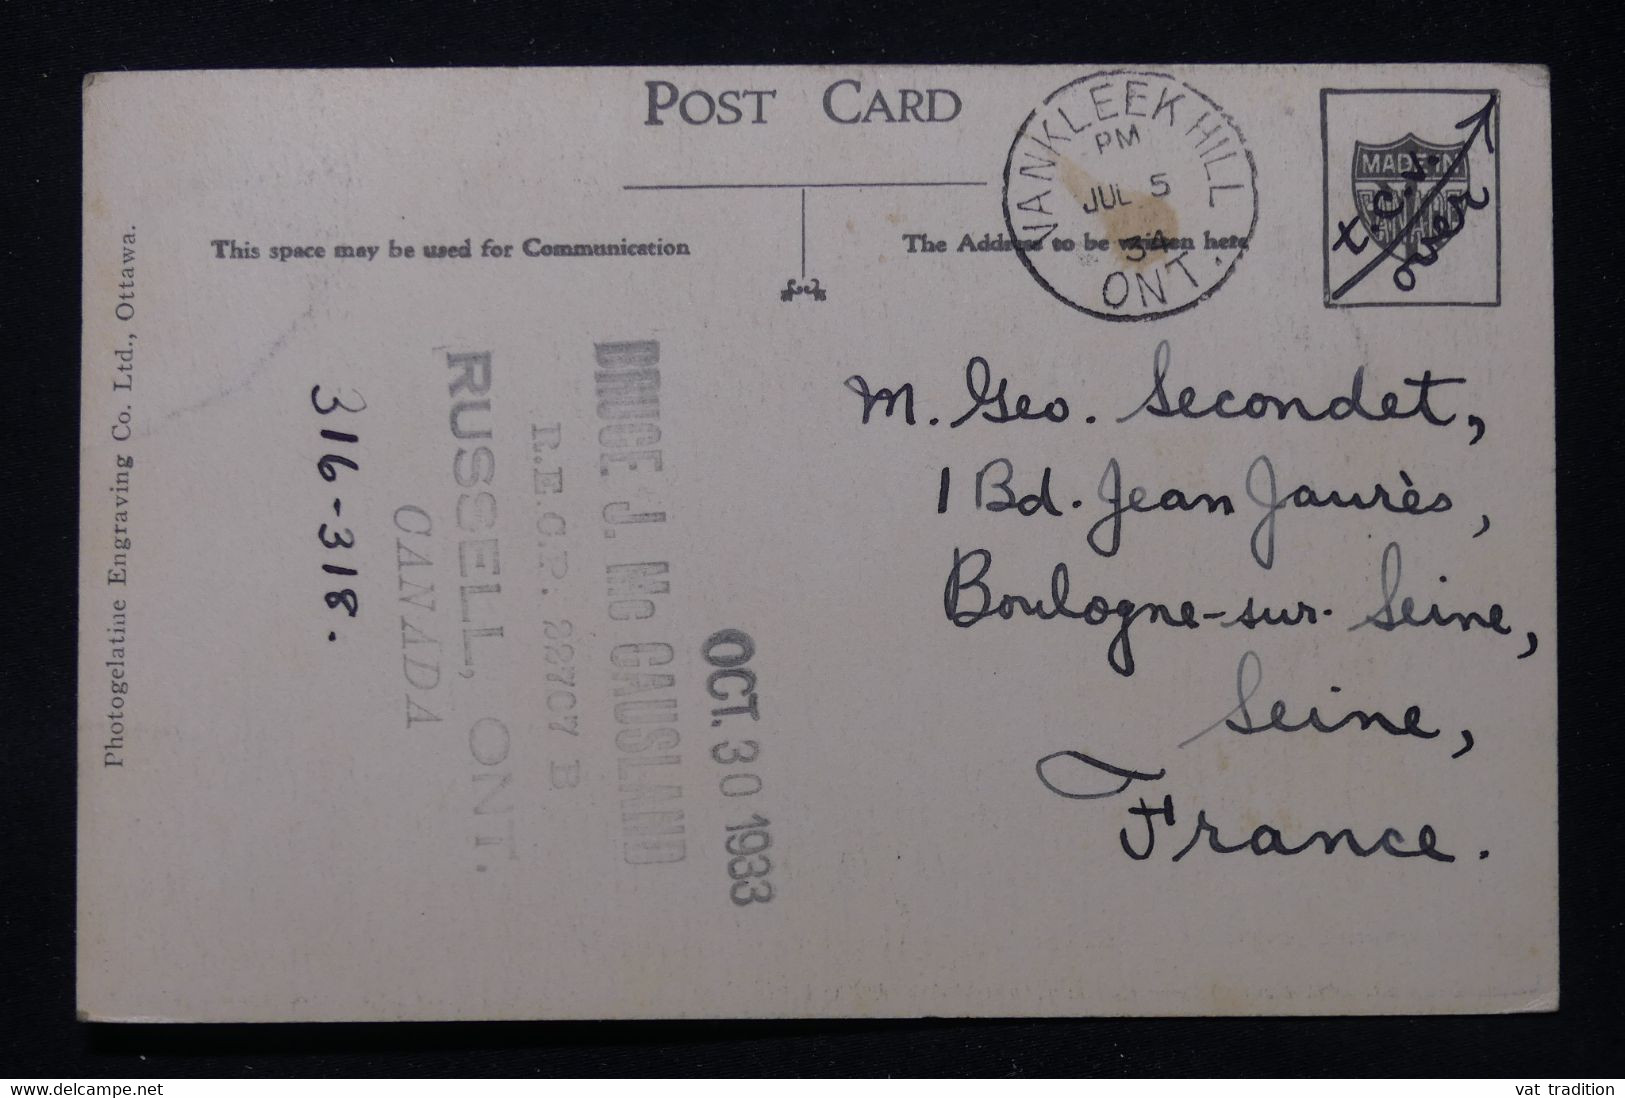 POST CARD
VANKLEEK HILL
PM
JUL 5
34
ONT.
MADE IN
CANADA
X.C.V.
over
This space may be used for Communication
The Address to be written here
Photogelatine Engraving Co. Ltd., Ottawa.
316-318.
CANADA
RUSSELL, ONT.
R.E.C.P. 227C7 B
BRUCE J. Mc CAUSLAND
OCT. 30 1933
M. Geo. Secondet,
1 Bd. Jean Jaurès,
Boulogne-sur-Seine,
Seine,
France.
www.delcampe.net
vat_tradition